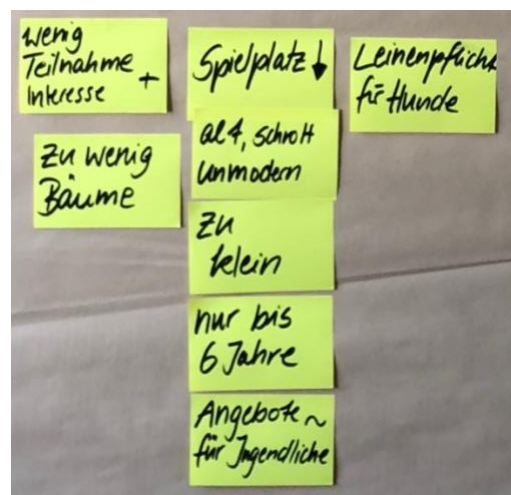 wenig
Teilnahme +
Interesse
zu wenig
Bäume
Spielplatz ↓
alt, schrott
unmodern
zu
klein
nur bis
6 Jahre
Angebote ~
für Jugendliche
Leinenpflicht
für Hunde